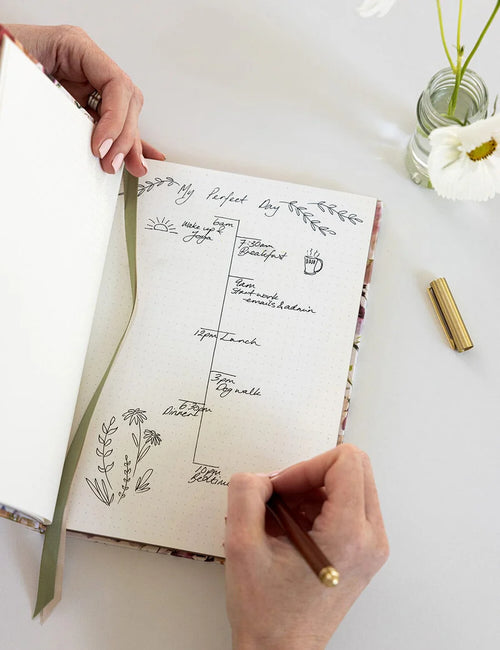 My Perfect Day
6am
Wake up &
Yoga
7:30am
Breakfast
9am
Start work
- emails & admin
12pm Lunch
3pm
Dog walk
6:30pm
Dinner
10pm
Bedtime